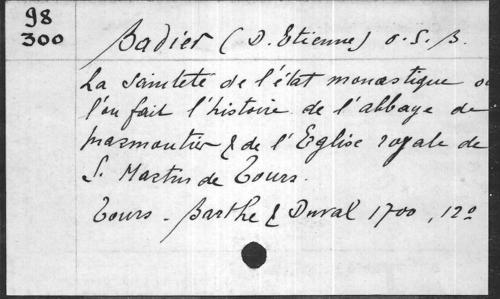 98
300
Badier (D. Etienne) o.S.B.
La sainteté de l'état monastique où
l'on fait l'histoire de l'abbaye de
Marmoutier & de l'Eglise royale de
S. Martin de Tours.
Tours - Barthe & Duval 1700, 12º